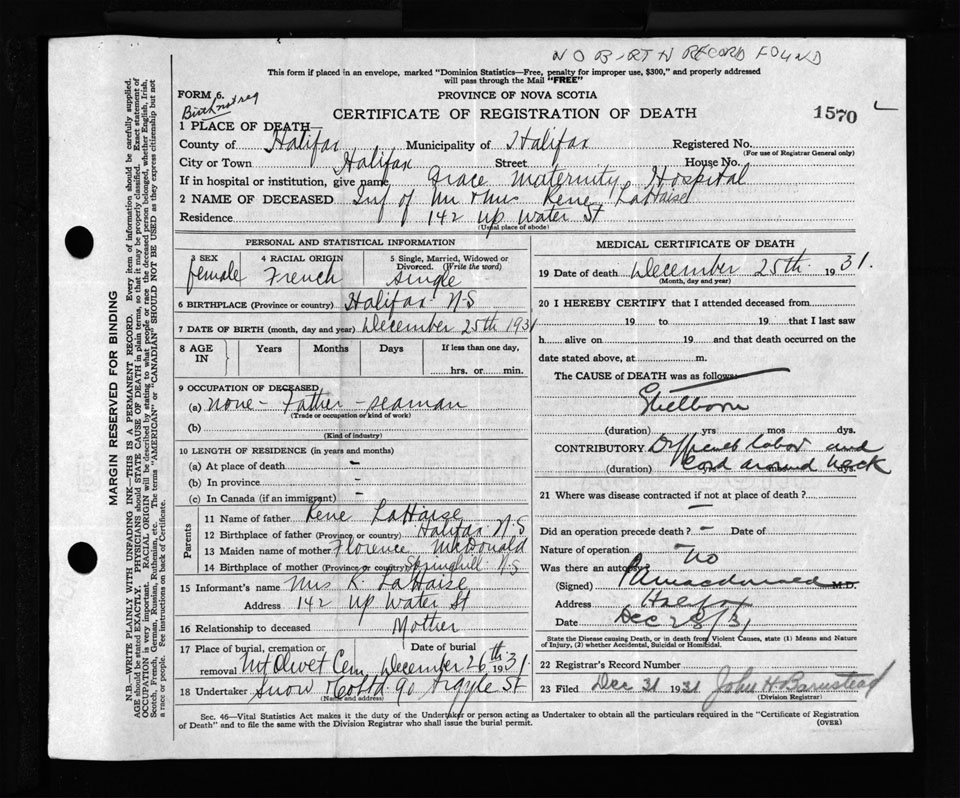 NO BIRTH RECORD FOUND
This form if placed in an envelope, marked "Dominion Statistics—Free, penalty for improper use, $300," and properly addressed
will pass through the Mail "FREE"
FORM 6.
PROVINCE OF NOVA SCOTIA
Birth not reg
CERTIFICATE OF REGISTRATION OF DEATH
1570
1 PLACE OF DEATH—
County of Halifax Municipality of Halifax Registered No.
(For use of Registrar General only)
City or Town Halifax Street House No.
If in hospital or institution, give name Grace Maternity Hospital
2 NAME OF DECEASED Inf of Mr & Mrs Rene LaHaise
Residence 142 Up Water St
(Usual place of abode)
PERSONAL AND STATISTICAL INFORMATION
3 SEX 4 RACIAL ORIGIN 5 Single, Married, Widowed or
Divorced. (Write the word)
female French Single
6 BIRTHPLACE (Province or country) Halifax N-S
7 DATE OF BIRTH (month, day and year) December 25th 1931
8 AGE IN Years Months Days If less than one day,
hrs. or min.
9 OCCUPATION OF DECEASED
(a) none - Father - seaman
(Trade or occupation or kind of work)
(b)
(Kind of industry)
10 LENGTH OF RESIDENCE (in years and months)
(a) At place of death –
(b) In province –
(c) In Canada (if an immigrant) –
Parents
11 Name of father Rene LaHaise
12 Birthplace of father (Province or country) Halifax N-S
13 Maiden name of mother Florence McDonald
14 Birthplace of mother (Province or country) Springhill N-S
15 Informant's name Mrs R. LaHaise
Address 142 Up Water St
16 Relationship to deceased Mother
17 Place of burial, cremation or Date of burial
removal Mt Olivet Cem December 26th 1931.
18 Undertaker Snow & Co Ltd 90 Argyle St
(Name and address)
MEDICAL CERTIFICATE OF DEATH
19 Date of death December 25th. 1931.
(Month, day and year)
20 I HEREBY CERTIFY that I attended deceased from
19 to 19 that I last saw
h alive on 19 and that death occurred on the
date stated above, at m.
The CAUSE of DEATH was as follows:
Stillborn
(duration) yrs mos dys.
CONTRIBUTORY Difficult labor and
(duration) yrs mos dys. cord around neck
21 Where was disease contracted if not at place of death?
–
Did an operation precede death? – Date of
Nature of operation –
Was there an autopsy no
(Signed) Macdonald M.D.
Address Halifax
Date Dec 28/31
State the Disease causing Death, or in death from Violent Causes, state (1) Means and Nature
of Injury, (2) whether Accidental, Suicidal or Homicidal.
22 Registrar's Record Number
23 Filed Dec 31 1931 John H Barnstead
(Division Registrar)
Sec. 46—Vital Statistics Act makes it the duty of the Undertaker or person acting as Undertaker to obtain all the particulars required in the "Certificate of Registration
of Death" and to file the same with the Division Registrar who shall issue the burial permit. (OVER)
MARGIN RESERVED FOR BINDING
N.B.—WRITE PLAINLY WITH UNFADING INK—THIS IS A PERMANENT RECORD. Every item of information should be carefully supplied.
AGE should be stated EXACTLY. PHYSICIANS should STATE CAUSE OF DEATH in plain terms, so that it may be properly classified. Exact statement of
OCCUPATION is very important. RACIAL ORIGIN will be described by stating to what people or race the deceased person belonged, whether English, Irish,
Scotch, French, German, Russian, Ruthenian, etc. The terms "AMERICAN" or "CANADIAN" SHOULD NOT BE USED as they express citizenship but not
a race or people. See instructions on back of Certificate.